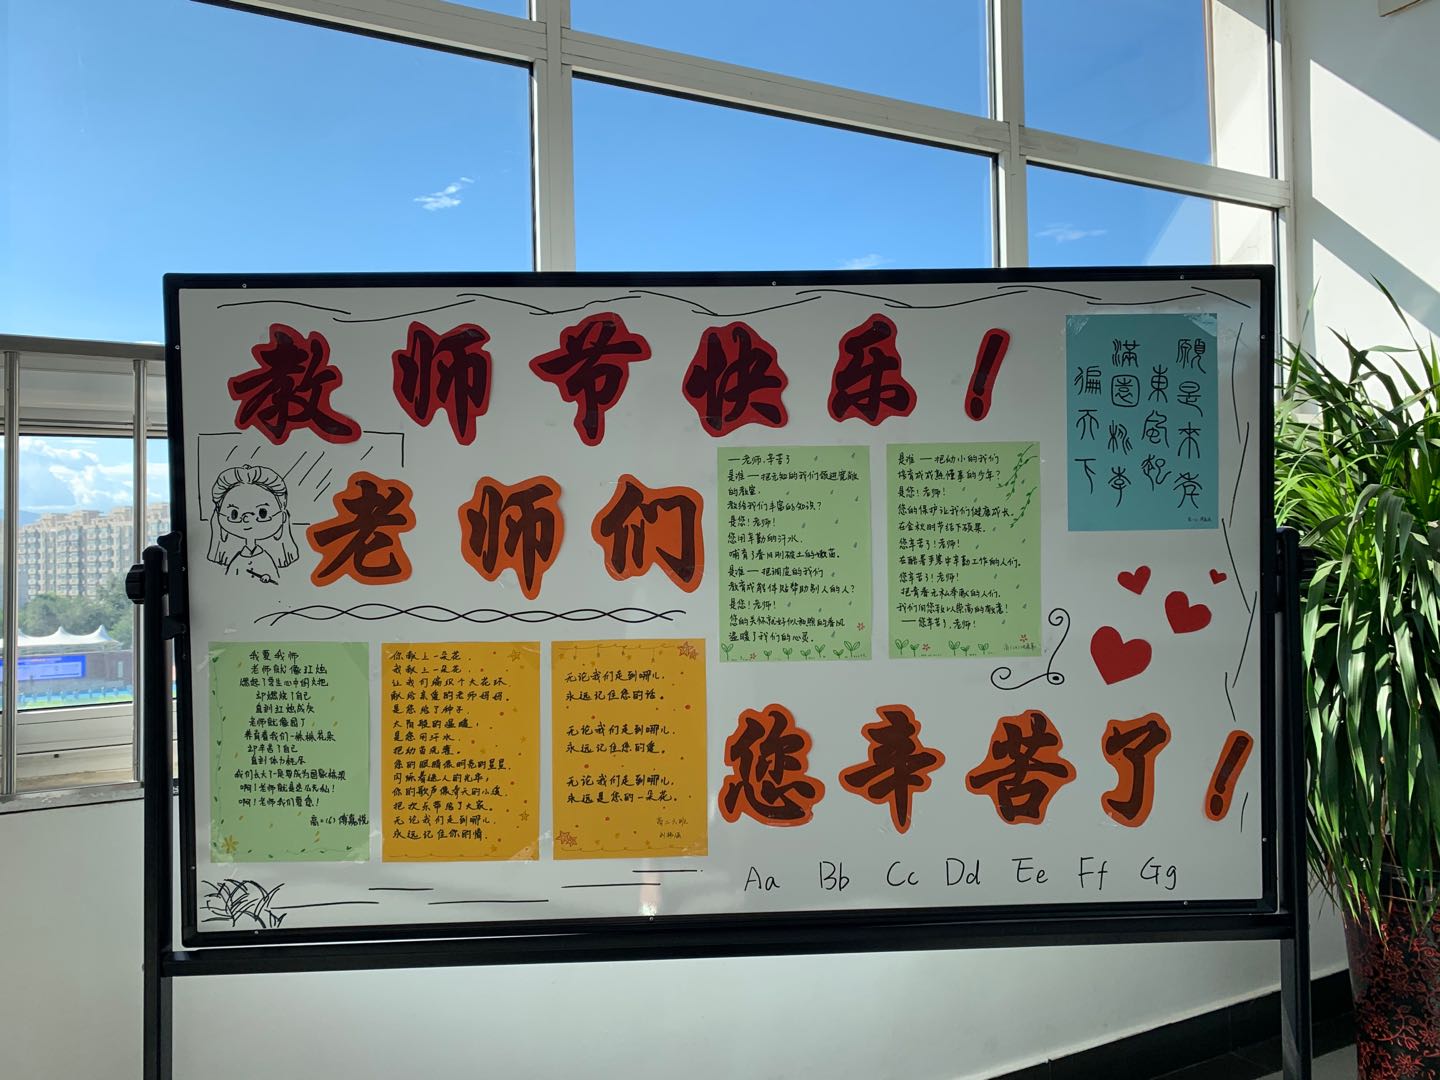 教师节快乐！
老师们
您辛苦了！
願是春來發
東風起
滿園桃李
徧天下
一老师，辛苦了
是谁——把无知的我们领进宽敞
的教室，
教给我们丰富的知识？
是您！老师！
您用辛勤的汗水，
哺育了春日刚破土的嫩苗。
是谁——把调皮的我们
教育成能体贴帮助别人的人？
是您！老师！
您的关怀就好似和煦的春风
温暖了我们的心灵。
是谁——把幼小的我们
培育成成熟懂事的少年？
是您！老师！
您的保护让我们健康成长。
在金秋时节结下硕果。
您辛苦了！老师！
在酷暑严寒中辛勤工作的人们。
您辛苦了！老师！
把青春无私奉献的人们。
我们向您致以崇高的敬意！
——您辛苦了，老师！
我爱我师
老师就像红烛
燃起了学生心中的火把
却燃烧了自己
直到红烛成灰
老师就像园丁
养育着我们一株株花朵
却辛苦了自己
直到体力耗尽
我们长大了是要成为国家栋梁
啊！老师就是这么无私！
啊！老师我们爱您！
高二(6) 傅嘉悦
你献上一朵花，
我献上一朵花，
让我们编织个大花环，
献给亲爱的老师妈妈，
是您给了种子，
太阳般的温暖；
是您用汗水，
把幼苗浇灌。
您的眼睛像明亮的星星，
闪烁着迷人的光华；
你的歌声像春天的小溪，
把欢乐带给了大家。
无论我们走到哪儿，
永远记住你的情，
无论我们走到哪儿，
永远记住您的话。
无论我们走到哪儿，
永远记住您的爱。
无论我们走到哪儿，
永远是您的一朵花。
高二六班
Aa Bb Cc Dd Ee Ff Gg